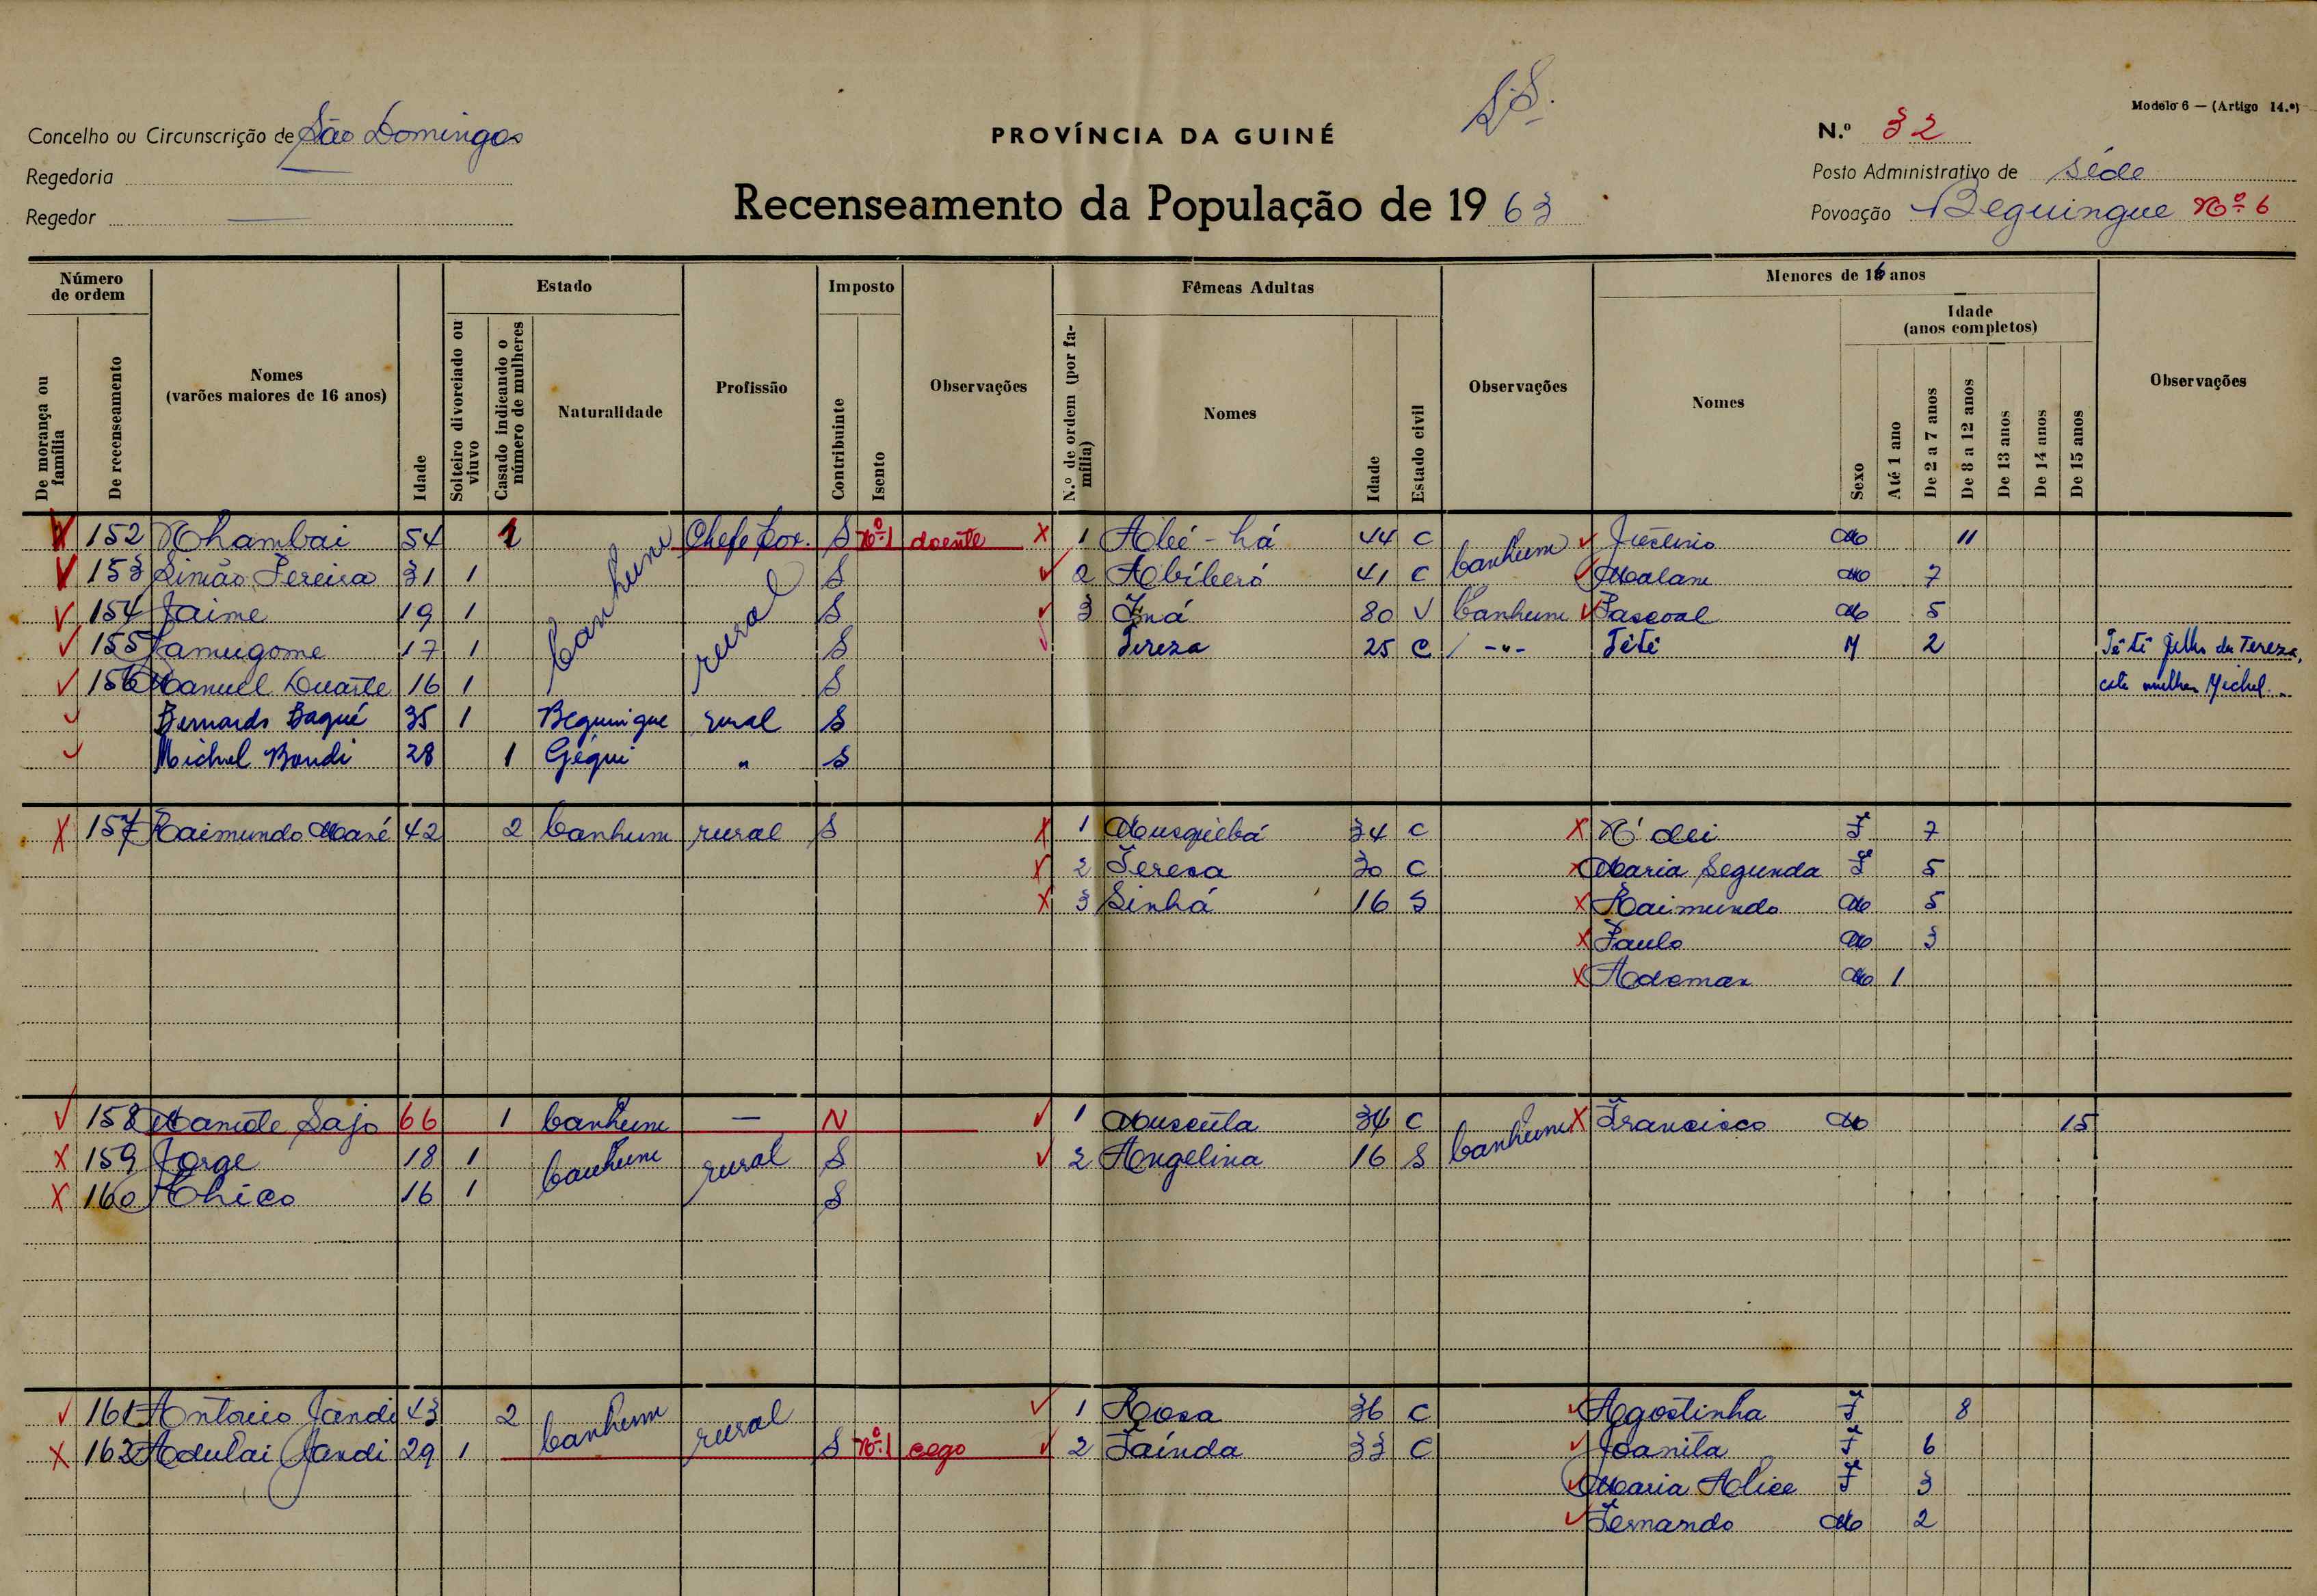 S.S.
Modelo 6 — (Artigo 14.º)
Concelho ou Circunscrição de São Domingos
PROVÍNCIA DA GUINÉ
N.º 32
Regedoria
Posto Administrativo de Séde
Regedor
Recenseamento da População de 19 63
Povoação Beguingue Nº 6
Número de ordem
De morança ou família
De recenseamento
Nomes
(varões maiores de 16 anos)
Idade
Estado
Solteiro divorciado ou viuvo
Casado indicando o número de mulheres
Naturalidade
Profissão
Imposto
Contribuinte
Isento
Observações
Fêmeas Adultas
N.º de ordem (por família)
Nomes
Idade
Estado civil
Observações
Menores de 16 anos
Nomes
Sexo
Idade
(anos completos)
Até 1 ano
De 2 a 7 anos
De 8 a 12 anos
De 13 anos
De 14 anos
De 15 anos
Observações
152 Nhambai 54 1 Banhum Chefe Pov. S Nº 1 doente 1 Abé-há 44 C Banhum Justino M 11
153 Simão Pereira 31 1 rural S 2 Abíberó 41 C Malam M 7
154 Jaime 19 1 S 3 Iná 80 V Banhum Pascoal M 5
155 Samugome 17 1 S Tereza 25 C -"- Têtê M 2 Têtê filho da Tereza,
156 Manuel Duarte 16 1 S esta mulher Michel
Bernardo Baqué 35 1 Beguingue rural S
Michel Bandi 28 1 Géqui " S
157 Raimundo Mané 42 2 Banhum rural S 1 Musquebá 34 C N'dei F 7
2 Teresa 30 C Maria Segunda F 5
3 Sinhá 16 S Raimundo M 5
Paulo M 3
Ademar M 1
158 Manúte Sajo 66 1 Banhum — N 1 Muscúta 34 C Banhum Francisco M 15
159 Jorge 18 1 Banhum rural S 2 Angelina 16 S
160 Chico 16 1 S
161 António Jandi 43 2 Banhum rural 1 Rosa 36 C Agostinha F 8
162 Adulai Jandi 29 1 S Nº 1 cego 2 Taínda 33 C Joanita F 6
Maria Alice F 3
Fernando M 2